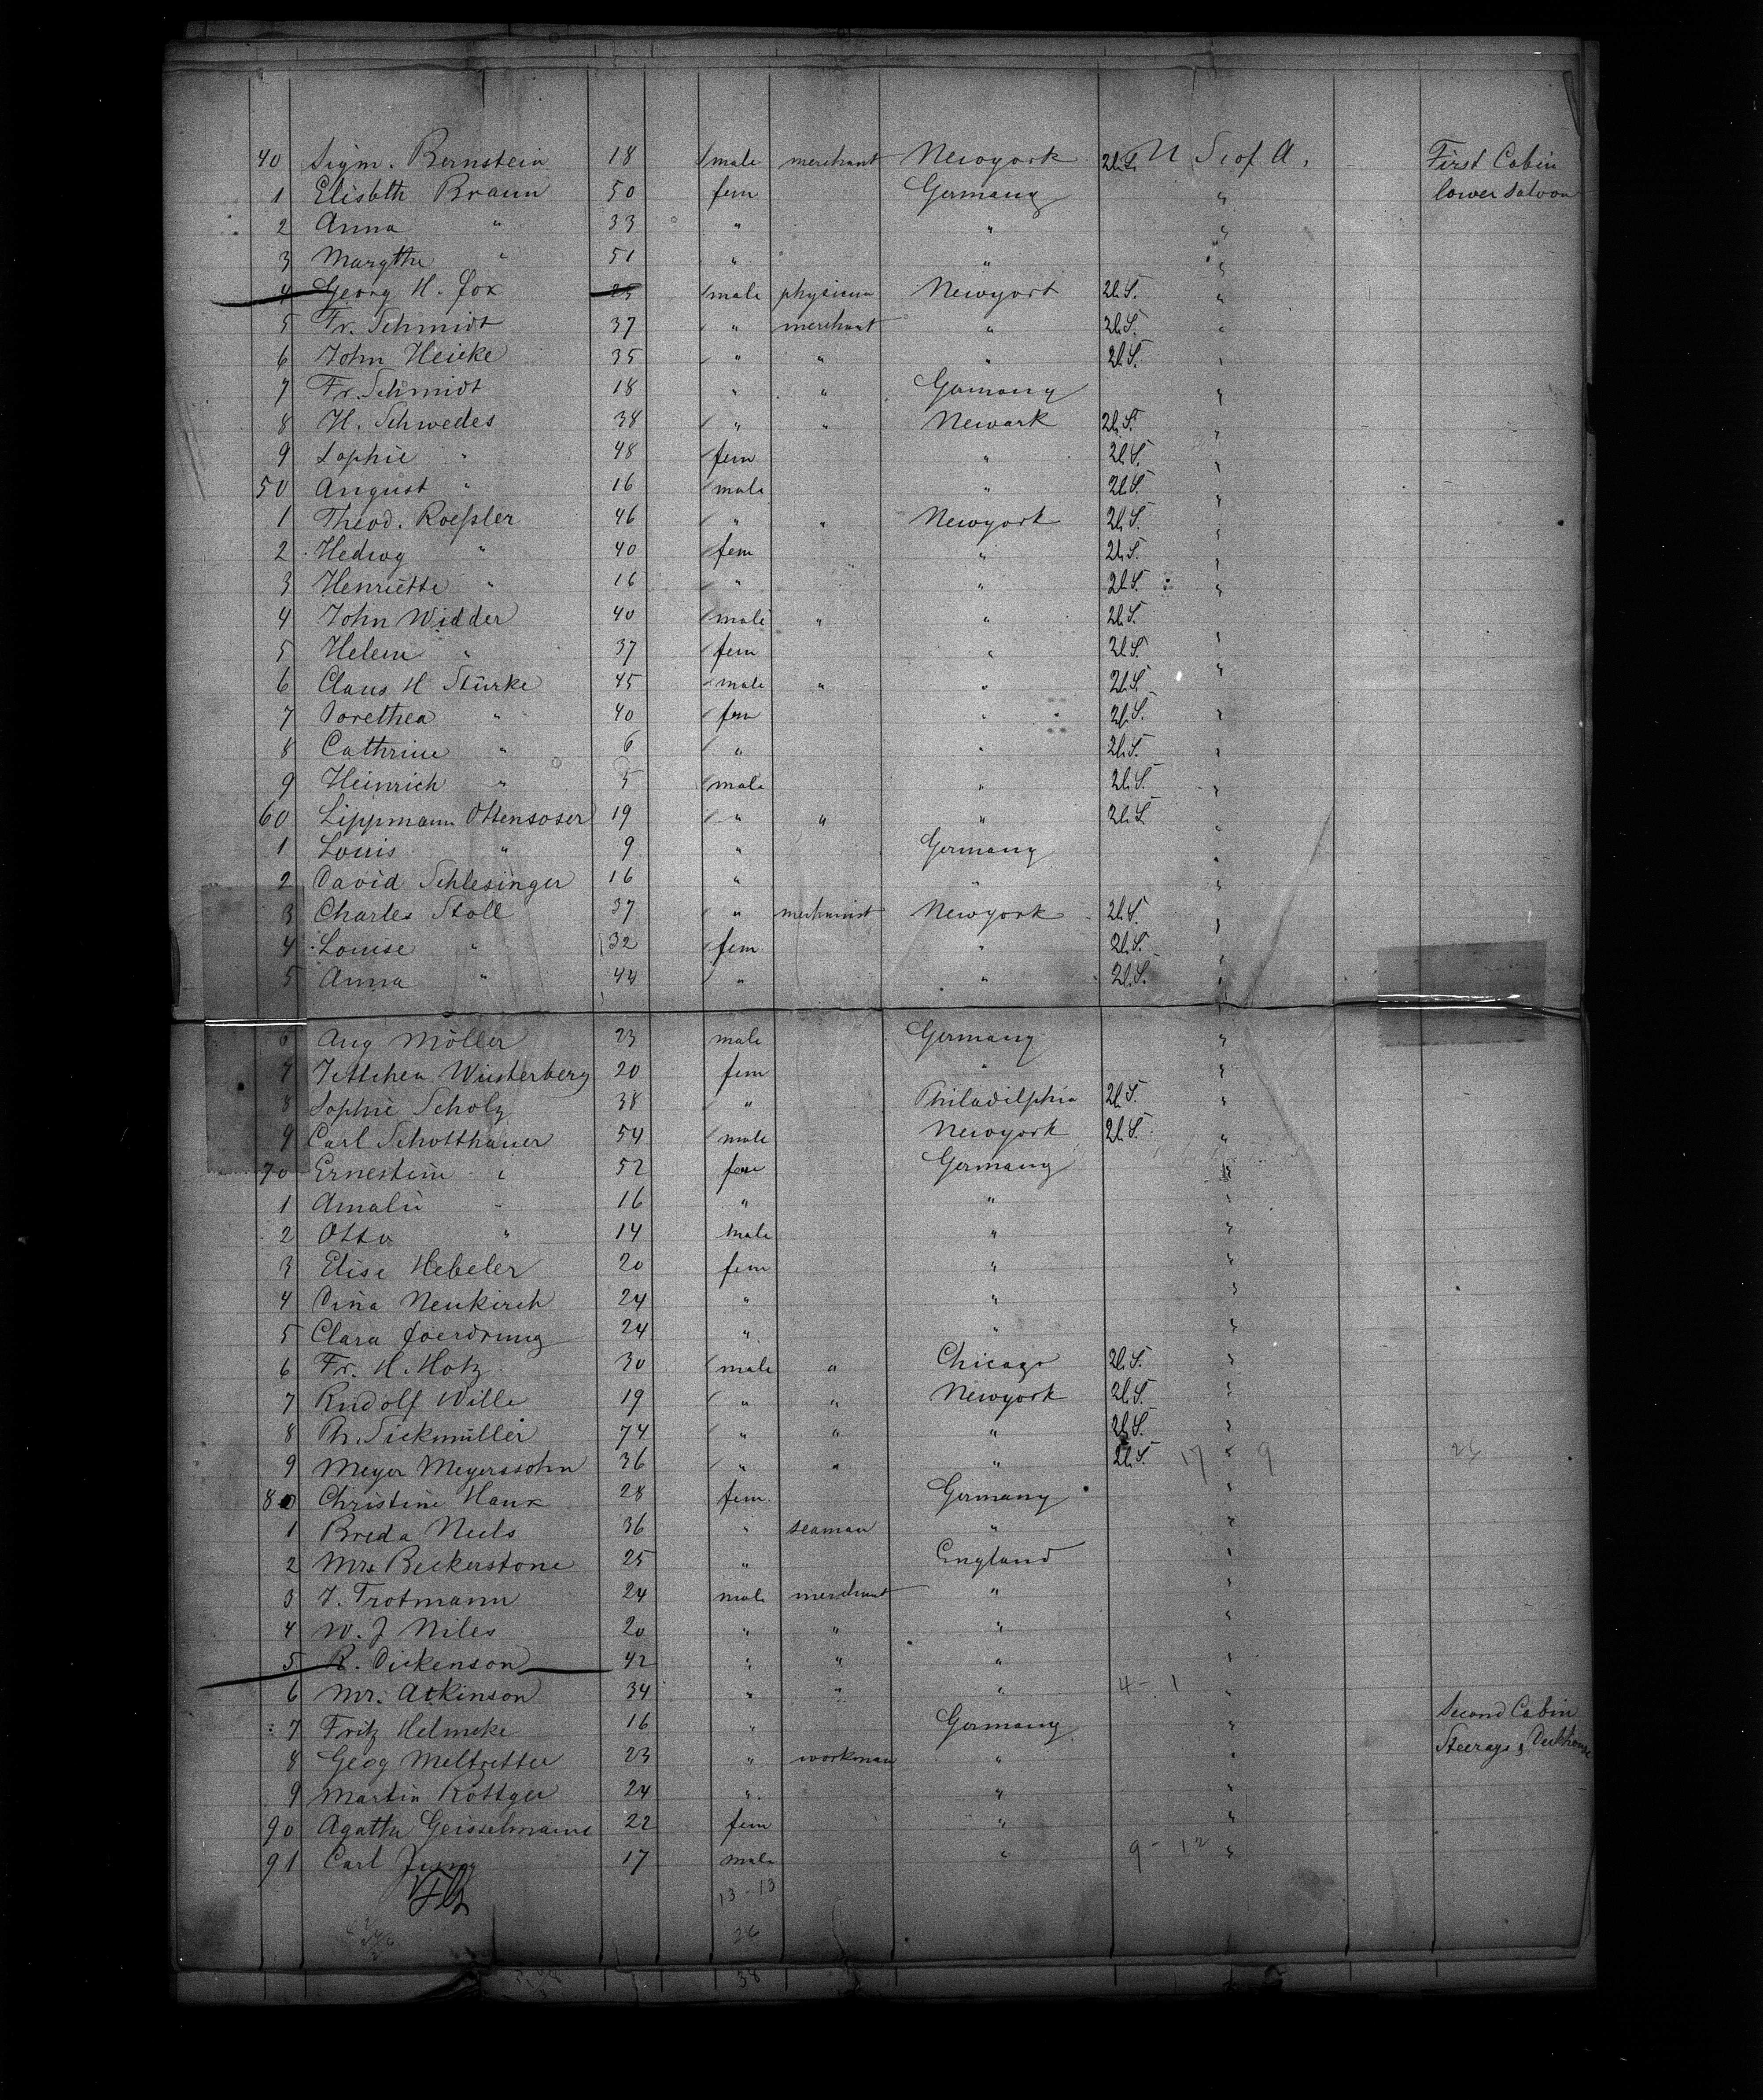 40 Sigm. Bernstein 18 male merchant Newyork U.S. U S of A, First Cabin
1 Elisbth Braun 50 fem Germany " lower Saloon
2 Anna " 33 " " "
3 Margthe " 51 " " "
4 Georg H. Fox 25 male physician Newyork U.S. "
5 Fr. Schmidt 37 " merchant " U.S. "
6 John Heicke 35 " " " U.S. "
7 Fr. Schmidt 18 " " Germany "
8 H. Schwedes 38 " " Newark U.S. "
9 Sophie " 48 fem " U.S. "
50 August " 16 male " U.S. "
1 Theod. Roeßler 46 " " Newyork U.S. "
2 Hedwg " 40 fem " U.S. "
3 Henriette " 16 " " U.S. "
4 John Widder 40 male " " U.S.
5 Helene " 37 fem " U.S. "
6 Claus H Stürke 45 male " " U.S. "
7 Dorethea " 40 fem " U.S. "
8 Cathrine " 6 " " U.S. "
9 Heinrich " 5 male " U.S. "
60 Lippmann Ottensoser 19 " " " U.S. "
1 Louis " 9 " Germany "
2 David Schlesinger 16 " " "
3 Charles Stoll 37 " mechanist Newyork U.S. "
4 Louise " 32 fem " U.S. "
5 Anna " 44 " " U.S. "
6 Aug Möller 23 male Germany "
7 Jettchen Wüsterberg 20 fem " "
8 Sophie Scholz 38 " Philadilphia U.S. "
9 Carl Schotthauer 54 male Newyork U.S. "
70 Ernestine " 52 fem Germany "
1 Amalie " 16 " " "
2 Otto " 14 male " "
3 Elise Hebeler 20 fem " "
4 Dina Neukirch 24 " " "
5 Clara Foerdrung 24 " " "
6 Fr. H. Hotz 30 male " Chicago U.S. "
7 Rudolf Wille 19 " " Newyork U.S. "
8 Ph. Sickmüller 74 " " " U.S. "
9 Meyer Meyerssohn 36 " " " U.S. 17 " 9 26
80 Christine Haux 28 fem. Germany "
1 Breda Neels 36 " seaman " "
2 Mrs Beckerstone 25 " England "
3 J. Trotmann 24 male merchant " "
4 W. J Niles 20 " " " "
5 R. Dickenson 42 " " " "
6 Mr. Atkinson 34 " " " 4 - 1 "
7 Fritz Helmeke 16 " Germany " Second Cabin
8 Geog Meltretter 23 " workman " " Steerage & Deckhouse
9 Martin Röttger 24 " " "
90 Agathe Geisselmann 22 fem " "
91 Carl Jung 17 male " 9 - 12 "
13 - 13
26
38